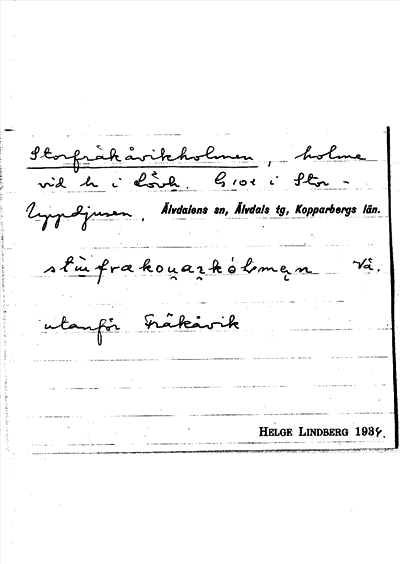 Storfråkåvikholmen, holme
vid h i Lövh. G 10 c i Stor-
Uppdjusen. Älvdalens sn, Älvdals tg, Kopparbergs län.
Vå.
utanför Fråkåvik
HELGE LINDBERG 1934.